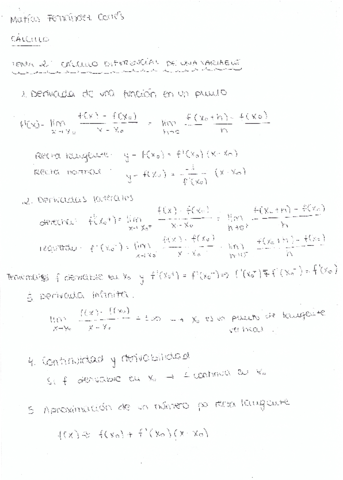 CÁLCULO
TEMA 2: CÁLCULO DIFERENCIAL DE UNA VARIABLE
1. Derivada de una función en un punto
f'(x) = lim x→x₀ f(x) - f(x₀) / x - x₀ = lim h→0 f(x₀+h) - f(x₀) / h
Recta tangente: y - f(x₀) = f'(x₀) (x - x₀)
Recta normal: y - f(x₀) = -1 / f'(x₀) (x - x₀)
2. Derivadas laterales
derecha: f'(x₀⁺) = lim x→x₀⁺ f(x) - f(x₀) / x - x₀ = lim h→0⁺ f(x₀+h) - f(x₀) / h
izquierda: f'(x₀⁻) = lim x→x₀⁻ f(x) - f(x₀) / x - x₀ = lim h→0⁻ f(x₀+h) - f(x₀) / h
f derivable en x₀ y f'(x₀⁺) = f'(x₀⁻) ⇒ f'(x₀⁺) = f'(x₀⁻) = f'(x₀)
3. Derivada infinita
lim x→x₀ f(x) - f(x₀) / x - x₀ = ±∞ → x₀ es un punto de tangente
vertical
4. Continuidad y derivabilidad
Si f derivable en x₀ → f continua en x₀
5. Aproximación de un número por recta tangente
f(x) ≈ f(x₀) + f'(x₀) (x - x₀)